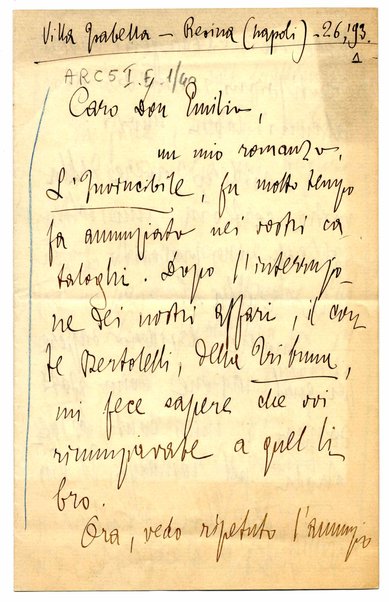 Villa Isabella - Resina (Napoli) - 26, '93.
ARC 5 I
Caro Don Emilio,
un mio romanzo,
L'Invincibile, fu molto tempo
fa annunziato nei vostri ca
taloghi. Dopo l'interruzio
ne dei nostri affari, il con
te Bertolelli, della Tribuna,
mi fece sapere che voi
rinunziavate a quel li
bro.
Ora, vedo ripetuto l'annunzio